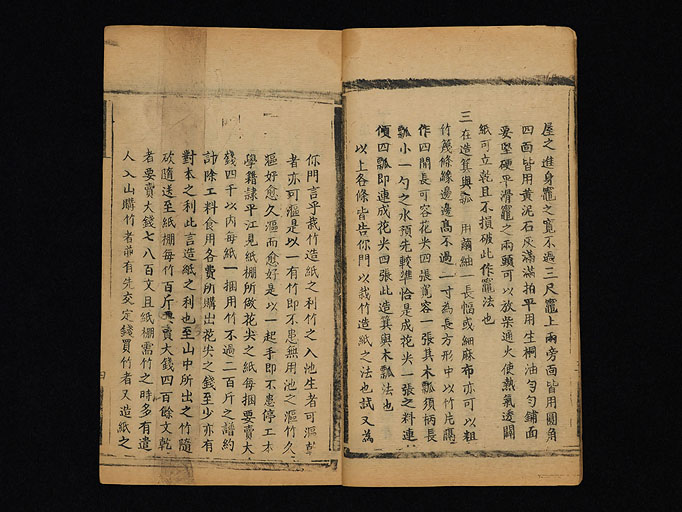 屋之進身竈之寬不過三尺竈上兩旁面皆用圓角
四面皆用黃泥石灰滿滿拍平用生桐油勻勻鋪面
要堅硬平滑竈之兩頭可以放柴進火使熱氣透闢
紙可立乾且不損破此作竈法也
三在造箕與瓢 用繭紬一長幅或細麻布亦可以粗
竹篾條緣邊邊高不過二寸為長方形中以竹片隔
作四開長可容花尖四張寬容一張其木瓢須柄長
瓢小一勺之水預先較準恰是成花尖一張之料連
傾四瓢即連成花尖四張此造箕與木瓢法也
以上各條皆告你門以栽竹造紙之法也試又為
你門言乎栽竹造紙之利竹之入池生者可漚乾
者亦可漚是以一有竹即不患無用池之漚竹久
漚好愈久漚而愈好是以一起手即不患停工本
學籍隸平江見紙棚所做花尖之紙每捆要賣大
錢四千以內每紙一捆用竹不過二百斤之譜約
計除工料食用各費所購出花尖之錢至少亦有
對本之利此言造紙之利也至山中所出之竹隨
砍隨送至紙棚每竹百斤賣大錢四百餘文乾
者要賣大錢七八百文且紙棚需竹之時多有遣
人入山購竹者並有先交定錢買竹者又造紙之